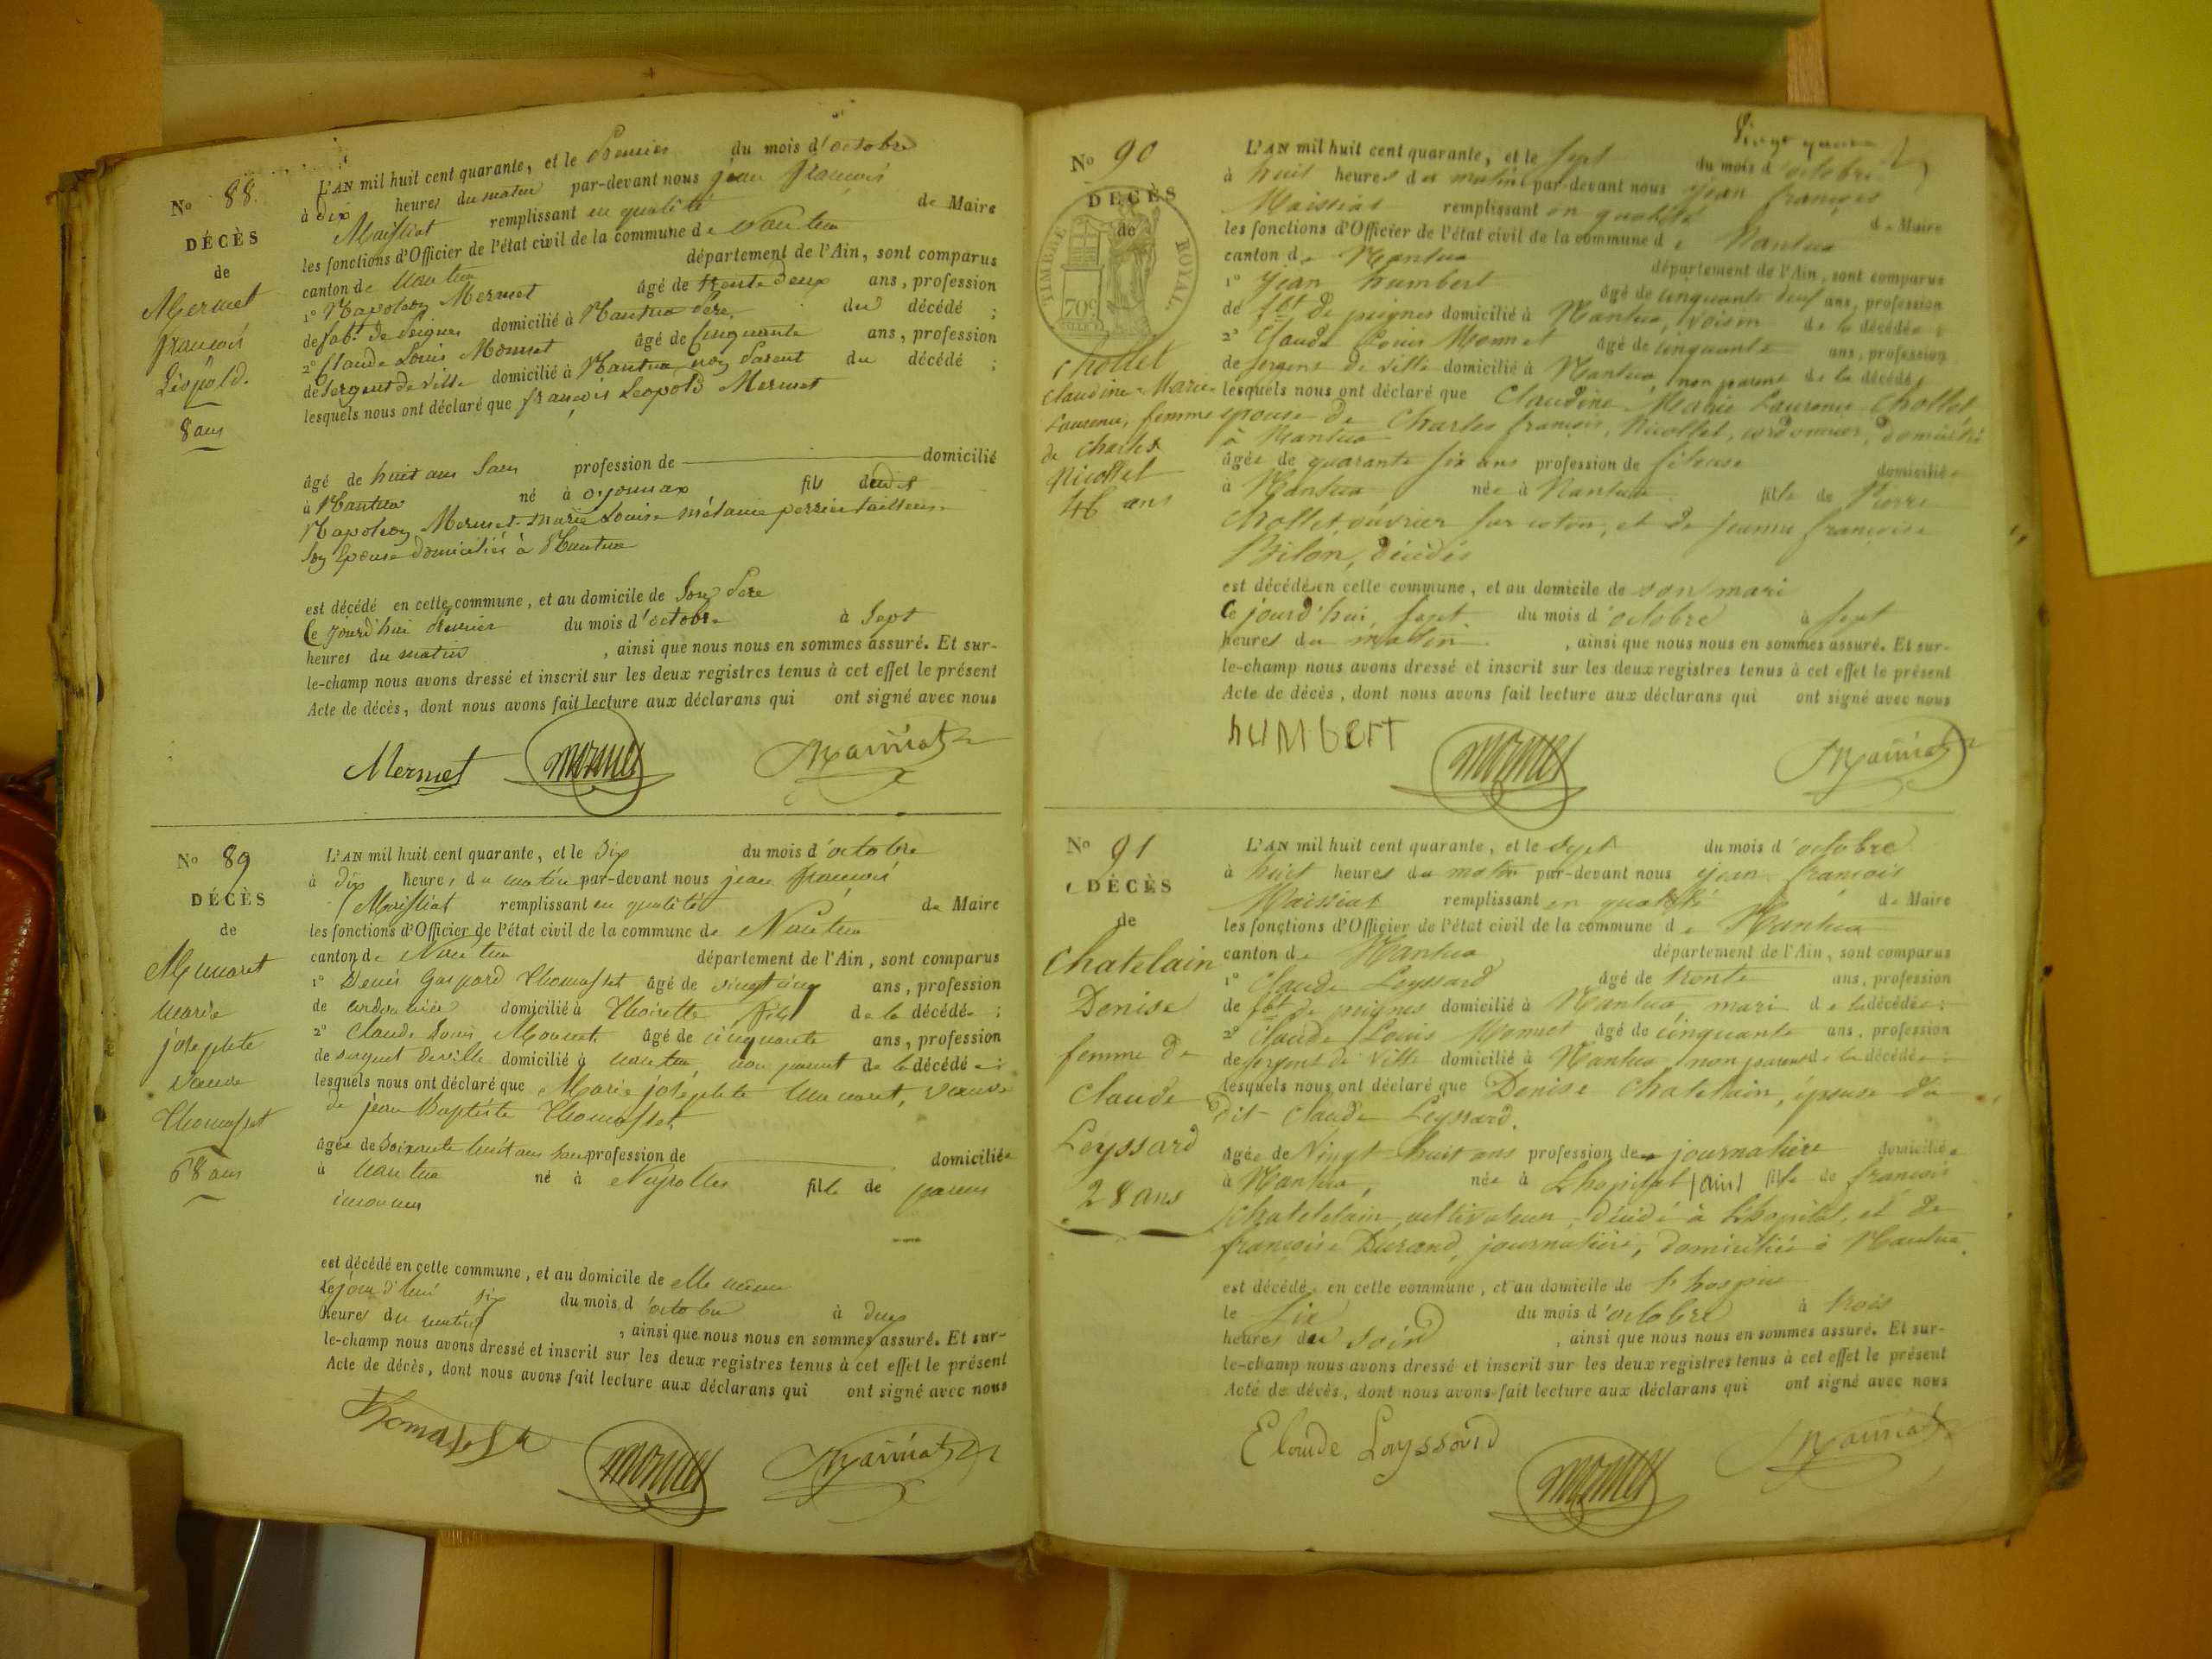 No 88.
DÉCÈS
de
Mermet
françois
Léopold.
8 ans
L'AN mil huit cent quarante, et le Premier du mois d'octobre
à dix heures du matin par-devant nous jean françois
Maissiat remplissant en qualité de Maire
les fonctions d'Officier de l'état civil de la commune de Nantua
canton de Nantua département de l'Ain, sont comparus
1° Napoléon Mermet âgé de trente deux ans, profession
de fabt. de Peignes domicilié à Nantua Père du décédé ;
2° Claude Louis Monnet âgé de Cinquante ans, profession
de Sergent de ville domicilié à Nantua non Parent du décédé ;
lesquels nous ont déclaré que françois Léopold Mermet
âgé de huit ans Sans profession de domicilié
à Nantua né à oyonnax fils dudit
Napoléon Mermet Marie Louise mélanie perrin tailleuse
son Epouse domiciliés à Nantua
est décédé en cette commune, et au domicile de Son Père
Ce jourd'hui Premier du mois d'octobre à Sept
heures du matin , ainsi que nous nous en sommes assuré. Et sur-
le-champ nous avons dressé et inscrit sur les deux registres tenus à cet effet le présent
Acte de décès, dont nous avons fait lecture aux déclarans qui ont signé avec nous
Mermet Monnet Maissiat
No 89
DÉCÈS
de
marie
josephte
veuve
Thomasset
68 ans
L'AN mil huit cent quarante, et le Six du mois d'octobre
à dix heures du matin par-devant nous jean françois
Maissiat remplissant en qualité de Maire
les fonctions d'Officier de l'état civil de la commune de Nantua
canton de Nantua département de l'Ain, sont comparus
1° Denis Gaspard Thomasset âgé de vingt cinq ans, profession
de cordonnier domicilié à Thoirette fils de la décédée ;
2° Claude Louis Monnet âgé de cinquante ans, profession
de sergent de ville domicilié à nantua, non parent de la décédée ;
lesquels nous ont déclaré que Marie josephte veuve
de jean Baptiste Thomasset
âgée de Soixante huit ans sans profession de domiciliée
à nantua né à Neyrolles fille de parens
inconnus
est décédé en cette commune, et au domicile de elle même
Cejourd'hui six du mois d'octobre à deux
heures du matin , ainsi que nous nous en sommes assuré. Et sur-
le-champ nous avons dressé et inscrit sur les deux registres tenus à cet effet le présent
Acte de décès, dont nous avons fait lecture aux déclarans qui ont signé avec nous
Monnet Maissiat
No 90
DÉCÈS
de
TIMBRE ROYAL.
70c
Chollet
Claudine-Marie-
Laurence, femme
de Charles
Nicollet
46 ans
L'AN mil huit cent quarante, et le sept du mois d'octobre
à huit heures du matin par-devant nous jean françois
Maissiat remplissant en qualité de Maire
les fonctions d'Officier de l'état civil de la commune de Nantua
canton de Nantua département de l'Ain, sont comparus
1° Jean humbert âgé de cinquante neuf ans, profession
de fbt de peignes domicilié à Nantua, voisin de la décédée ;
2° Claude Louis Monnet âgé de cinquante ans, profession
de sergent de ville domicilié à Nantua, non parent de la décédée,
lesquels nous ont déclaré que Claudine Marie Laurence Chollet
épouse de Charles françois Nicollet, cordonnier, domicilié
à Nantua
âgée de quarante six ans profession de fileuse domiciliée
à Nantua née à Nantua fille de Pierre
Chollet, ouvrier sur coton, et de jeanne françoise
Bilon, décédés
est décédée en cette commune, et au domicile de son mari
Ce jourd'hui, sept du mois d'octobre à sept
heures du matin , ainsi que nous nous en sommes assuré. Et sur-
le-champ nous avons dressé et inscrit sur les deux registres tenus à cet effet le présent
Acte de décès, dont nous avons fait lecture aux déclarans qui ont signé avec nous
hUMbert Monnet Maissiat
No 91
DÉCÈS
de
Chatelain
Denise
femme de
Claude
Leyssard
28 ans
L'AN mil huit cent quarante, et le sept du mois d'octobre
à huit heures du matin par-devant nous jean françois
Maissiat remplissant en qualité de Maire
les fonctions d'Officier de l'état civil de la commune de Nantua
canton de Nantua département de l'Ain, sont comparus
1° Claude Leyssard âgé de trente ans, profession
de fbt de peignes domicilié à Nantua, mari de la décédée ;
2° Claude Louis Monnet âgé de cinquante ans, profession
de sergent de ville domicilié à Nantua, non parent de la décédée ;
lesquels nous ont déclaré que Denise Chatelain, épouse du
dit Claude Leyssard.
âgée de Vingt-huit ans profession de journalière domiciliée
à Nantua, née à Lhopital (ain) fille de françois
Chatelain, cultivateur, décédé à Lhopital, et de
françoise Durand, journalière, domiciliée à Nantua.
est décédée en cette commune, et au domicile de l'hospice
le six du mois d'octobre à trois
heures du soir , ainsi que nous nous en sommes assuré. Et sur-
le-champ nous avons dressé et inscrit sur les deux registres tenus à cet effet le présent
Acte de décès, dont nous avons fait lecture aux déclarans qui ont signé avec nous
Claude Layssard Monnet Maissiat